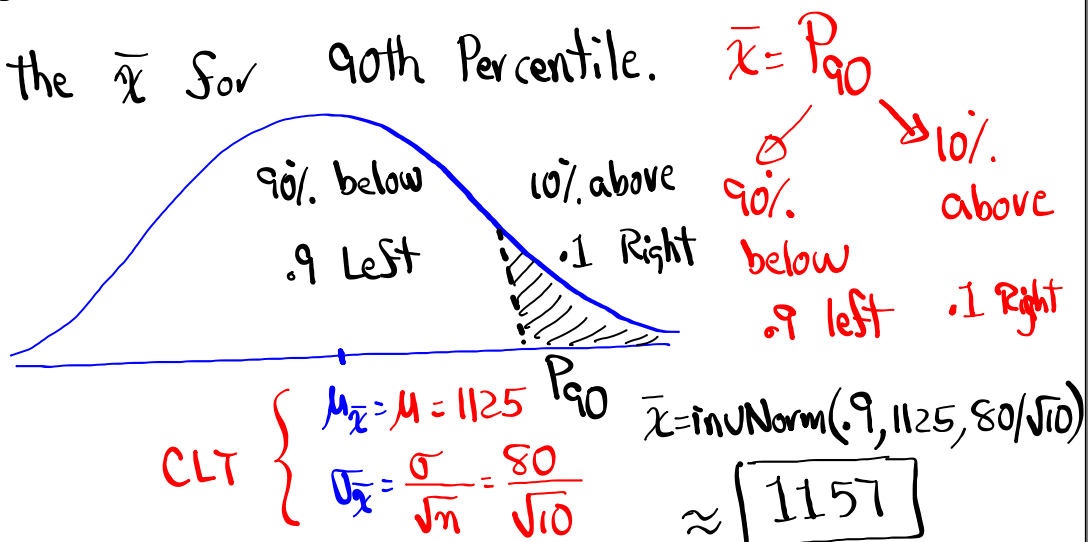 the x̄ for 90th Percentile.
x̄ = P90
90% below
.9 Left
10% above
.1 Right
90%
below
.9 left
10%
above
.1 Right
P90
CLT { μx̄ = μ = 1125
σx̄ = σ/√n = 80/√10
x̄=invNorm(.9,1125,80/√10)
≈ 1157